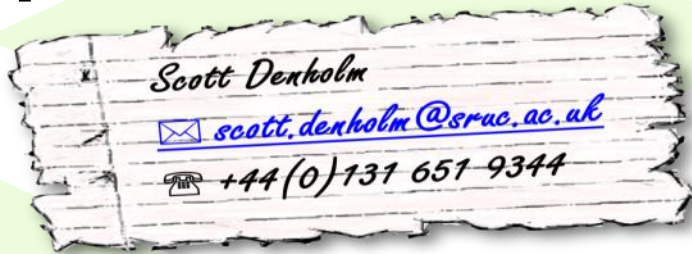 Scott Denholm
✉ scott.denholm@sruc.ac.uk
☏ +44(0)131 651 9344